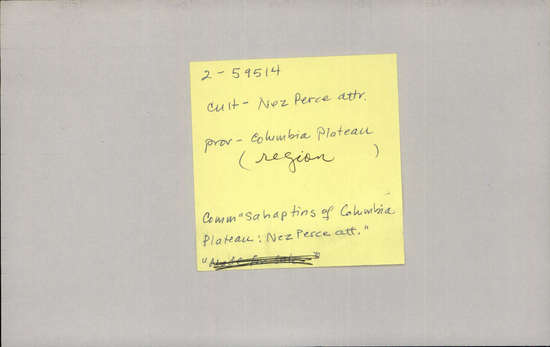 2-59514
cult- Nez Perce attr.
prov- Columbia Plateau
(region)
Comm "Sahaptins of Columbia
Plateau: Nez Perce att."
"Made for sale"